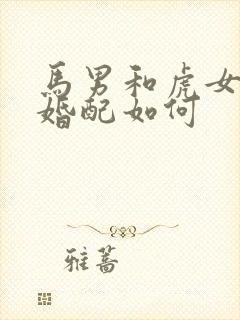 馬男和虎女
婚配如何
雅蔷